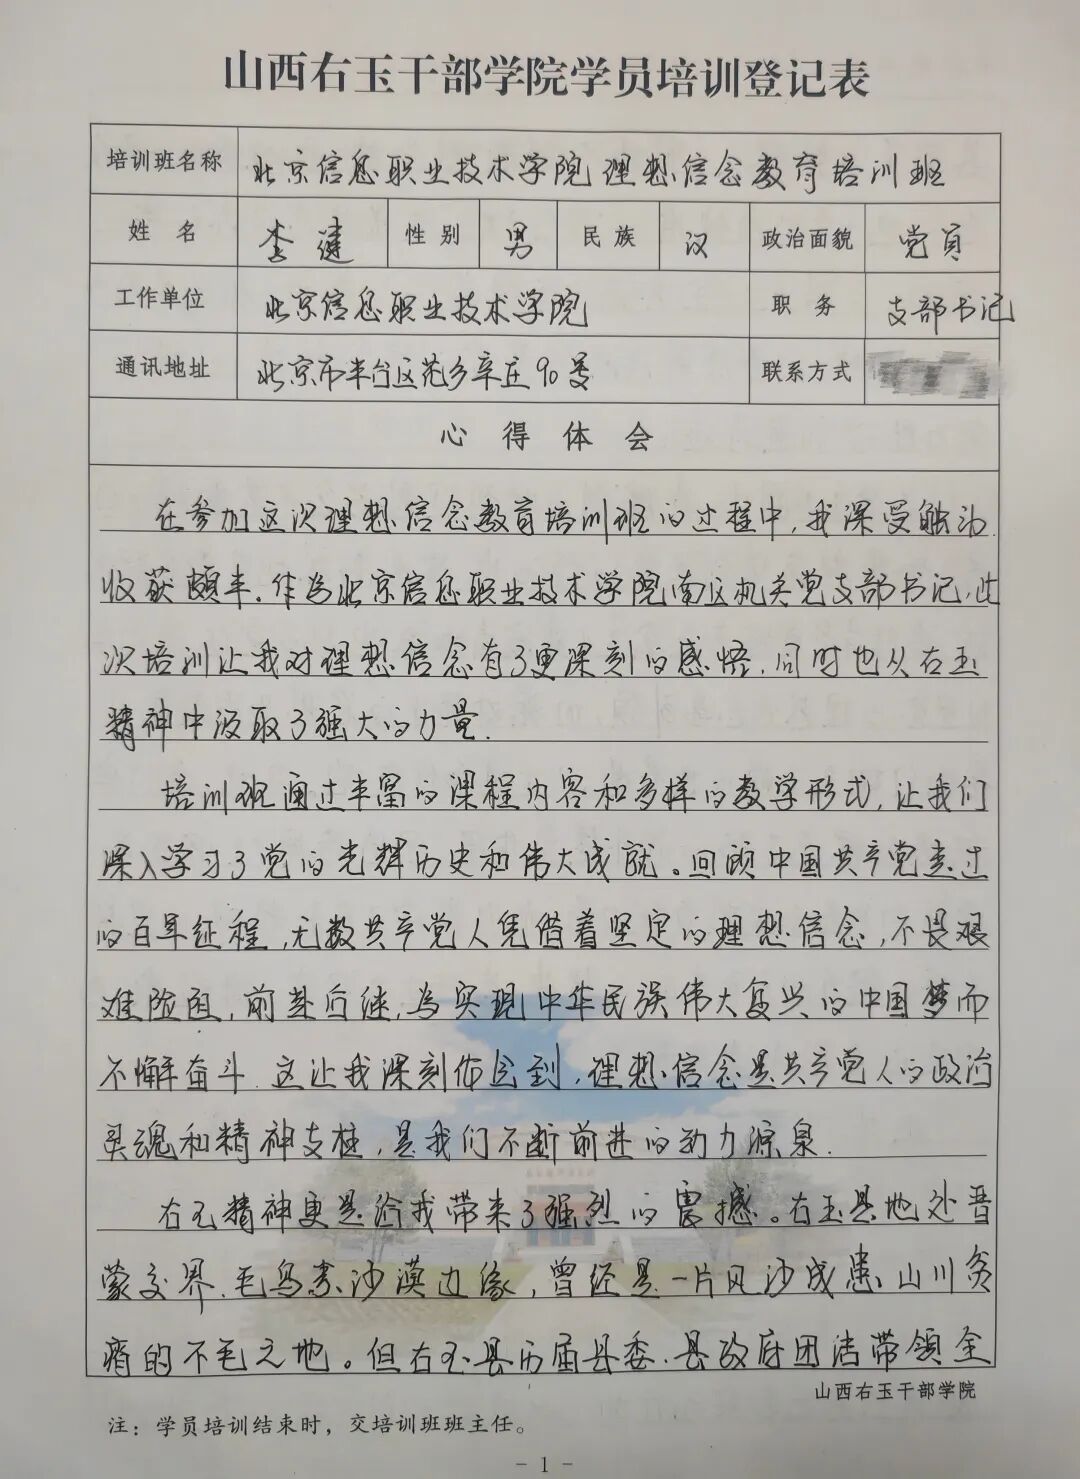 山西右玉干部学院学员培训登记表
培训班名称 北京信息职业技术学院理想信念教育培训班
姓 名 李健 性 别 男 民 族 汉 政治面貌 党员
工作单位 北京信息职业技术学院 职 务 支部书记
通讯地址 北京市丰台区花乡辛庄90号 联系方式
心 得 体 会
在参加这次理想信念教育培训班的过程中,我深受触动.
收获颇丰.作为北京信息职业技术学院南区机关党支部书记,此
次培训让我对理想信念有了更深刻的感悟.同时也从右玉
精神中汲取了强大的力量.
培训班通过丰富的课程内容和多样的教学形式,让我们
深入学习了党的光辉历史和伟大成就。回顾中国共产党走过
的百年征程,无数共产党人凭借着坚定的理想信念,不畏艰
难险阻,前赴后继,为实现中华民族伟大复兴的中国梦而
不懈奋斗.这让我深刻体会到,理想信念是共产党人的政治
灵魂和精神支柱,是我们不断前进的动力源泉.
右玉精神更是给我带来了强烈的震撼。右玉县地处晋
蒙交界.毛乌素沙漠边缘,曾经是一片风沙成患、山川贫
瘠的不毛之地。但右玉县历届县委.县政府团结带领全
山西右玉干部学院
注：学员培训结束时，交培训班班主任。
- 1 -